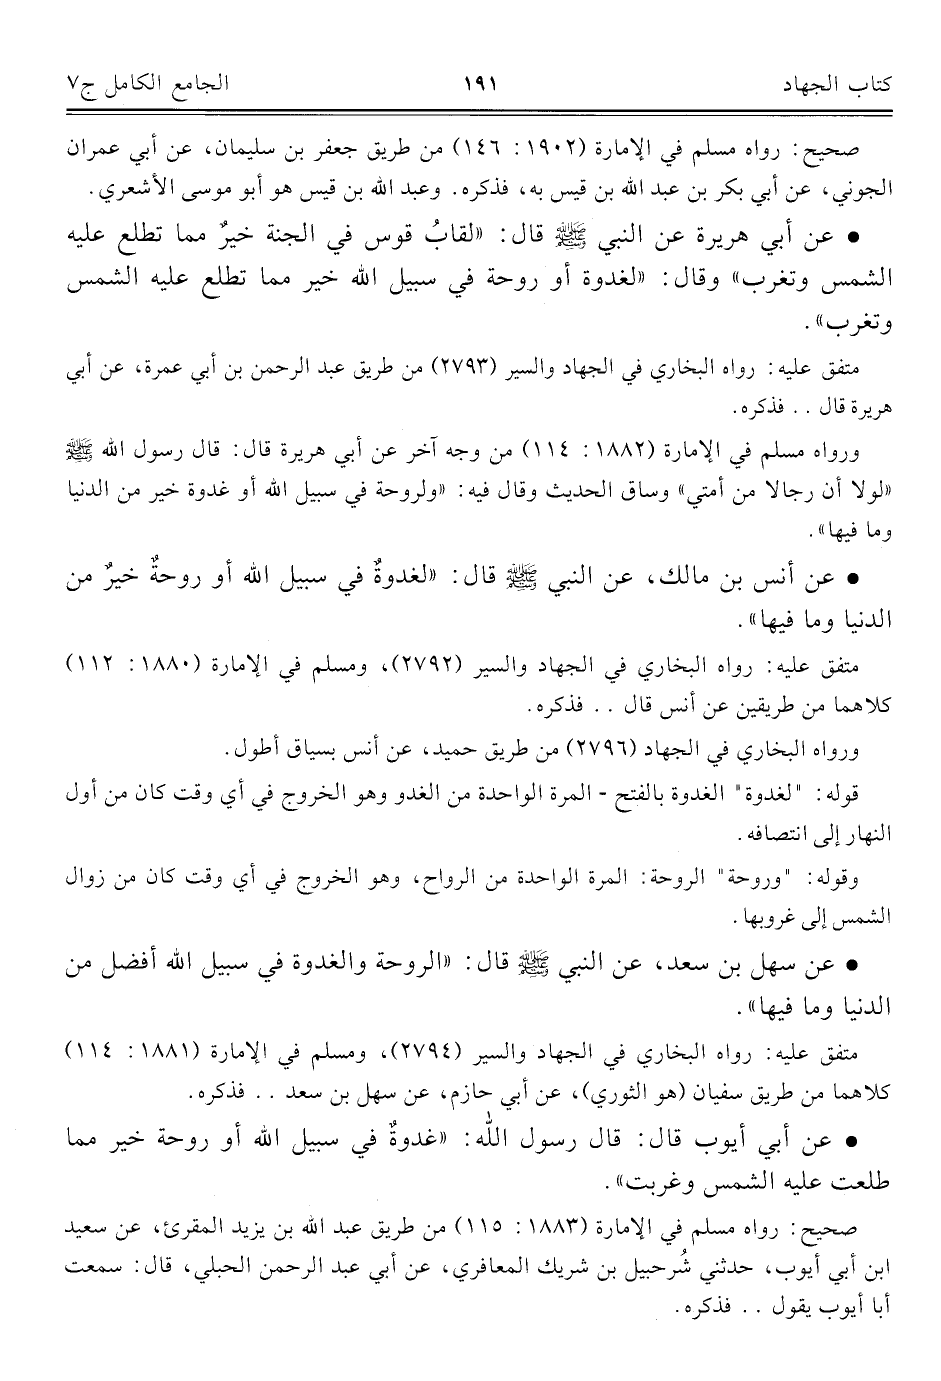 كتاب الجهاد ١٩١ الجامع الكامل ج٧
صحيح: رواه مسلم في الإمارة (١٩٠٢: ١٤٦) من طريق جعفر بن سليمان، عن أبي عمران
الجوني، عن أبي بكر بن عبد الله بن قيس به، فذكره. وعبد الله بن قيس هو أبو موسى الأشعري.
• عن أبي هريرة عن النبي ﷺ قال: «لقابُ قوس في الجنة خيرٌ مما تطلع عليه
الشمس وتغرب» وقال: «لغدوة أو روحة في سبيل الله خير مما تطلع عليه الشمس
وتغرب».
متفق عليه: رواه البخاري في الجهاد والسير (٢٧٩٣) من طريق عبد الرحمن بن أبي عمرة، عن أبي
هريرة قال .. فذكره.
ورواه مسلم في الإمارة (١٨٨٢: ١١٤) من وجه آخر عن أبي هريرة قال: قال رسول الله ﷺ
«لولا أن رجالا من أمتي» وساق الحديث وقال فيه: «ولروحة في سبيل الله أو غدوة خير من الدنيا
وما فيها».
• عن أنس بن مالك، عن النبي ﷺ قال: «لغدوةٌ في سبيل الله أو روحةٌ خيرٌ من
الدنيا وما فيها».
متفق عليه: رواه البخاري في الجهاد والسير (٢٧٩٢)، ومسلم في الإمارة (١٨٨٠: ١١٢)
كلاهما من طريقين عن أنس قال .. فذكره.
ورواه البخاري في الجهاد (٢٧٩٦) من طريق حميد، عن أنس بسياق أطول.
قوله: "لغدوة" الغدوة بالفتح - المرة الواحدة من الغدو وهو الخروج في أي وقت كان من أول
النهار إلى انتصافه.
وقوله: "وروحة" الروحة: المرة الواحدة من الرواح، وهو الخروج في أي وقت كان من زوال
الشمس إلى غروبها.
• عن سهل بن سعد، عن النبي ﷺ قال: «الروحة والغدوة في سبيل الله أفضل من
الدنيا وما فيها».
متفق عليه: رواه البخاري في الجهاد والسير (٢٧٩٤)، ومسلم في الإمارة (١٨٨١: ١١٤)
كلاهما من طريق سفيان (هو الثوري)، عن أبي حازم، عن سهل بن سعد .. فذكره.
• عن أبي أيوب قال: قال رسول الله: «غدوةٌ في سبيل الله أو روحة خير مما
طلعت عليه الشمس وغربت».
صحيح: رواه مسلم في الإمارة (١٨٨٣: ١١٥) من طريق عبد الله بن يزيد المقرئ، عن سعيد
ابن أبي أيوب، حدثني شُرحبيل بن شريك المعافري، عن أبي عبد الرحمن الحبلي، قال: سمعت
أبا أيوب يقول .. فذكره.